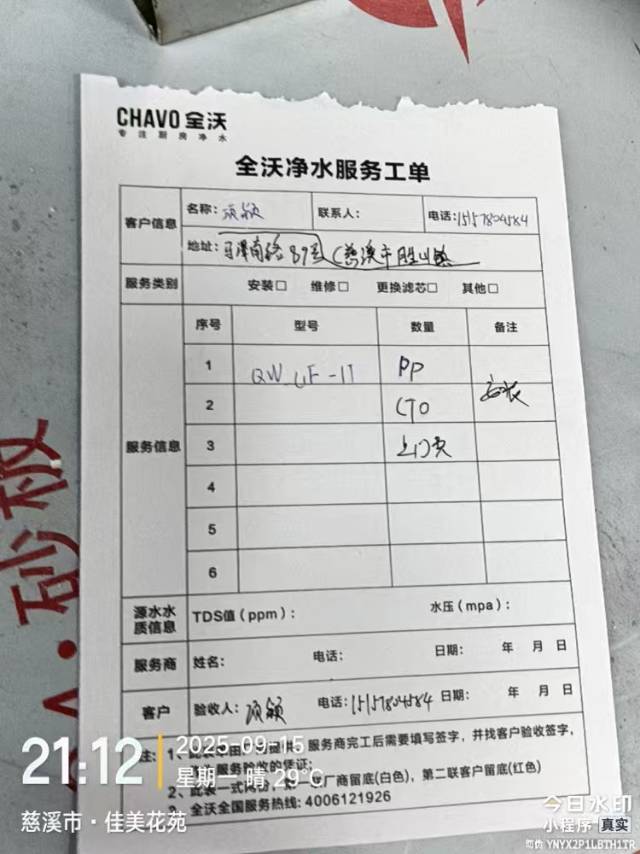 CHAVO 全沃
专注厨房净水
全沃净水服务工单
客户信息
名称：项颖
联系人：
电话：15157804584
地址：马潭南路89号(慈溪市胜山镇
服务类别
安装□ 维修□ 更换滤芯□ 其他□
服务信息
序号 型号 数量 备注
1 QW-UF-11 PP
2 CTO 安装
3 上门费
4
5
6
源水水质信息
TDS值（ppm）： 水压（mpa）：
服务商
姓名： 电话： 日期： 年 月 日
客户
验收人：项颖 电话：15157804584 日期： 年 月 日
服务商完工后需要填写签字，并找客户验收签字，
服务验收的凭证；
厂商留底(白色)，第二联客户留底(红色)
全沃全国服务热线：4006121926
21:12
2025-09-15
星期一 晴 29℃
慈溪市·佳美花苑
今日水印
小程序 真实
YNYX2P1LBTH1TR
砂板